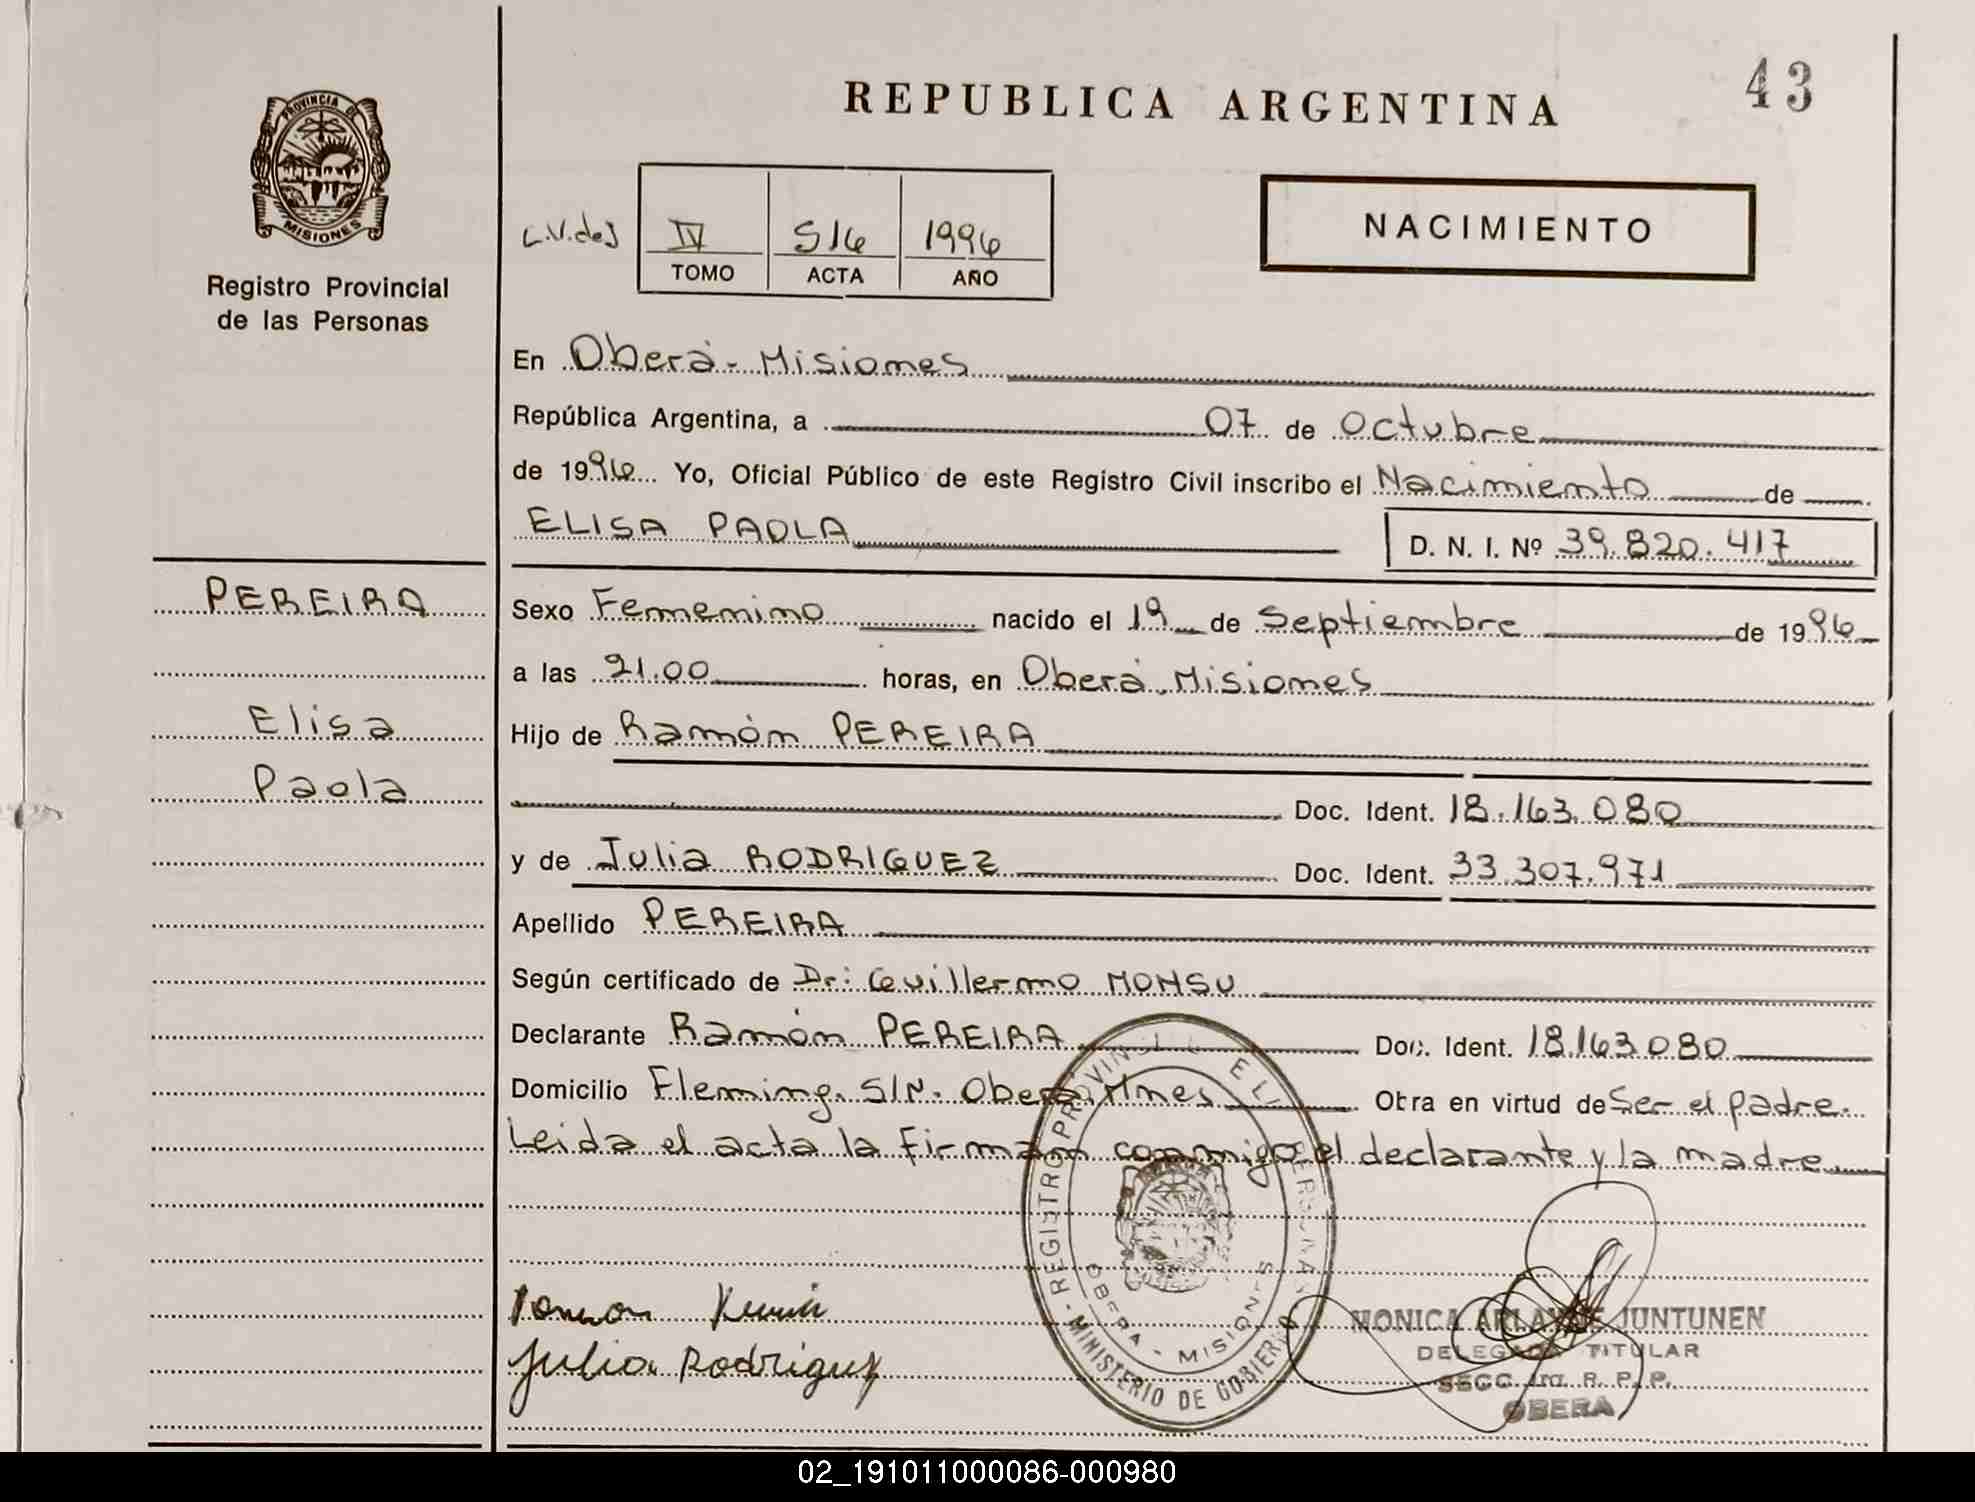 REPUBLICA ARGENTINA
43
PROVINCIA DE
MISIONES
Registro Provincial
de las Personas
IV
516
1996
TOMO
ACTA
AÑO
NACIMIENTO
En Oberá - Misiones
República Argentina, a 07 de Octubre
de 1996 Yo, Oficial Público de este Registro Civil inscribo el Nacimiento de
ELISA PAOLA
D. N. I. Nº 39.820.417
PEREIRA
Elisa
Paola
Sexo Femenino nacido el 19 de Septiembre de 1996
a las 21.00 horas, en Oberá, Misiones
Hijo de Ramón PEREIRA
Doc. Ident. 18.163.080
y de Julia RODRIGUEZ Doc. Ident. 33.307.971
Apellido PEREIRA
Según certificado de Dr: Guillermo MONSU
Declarante Ramón PEREIRA Doc. Ident. 18.163.080
Domicilio Fleming, S/N. Oberá, Mnes Obra en virtud de Ser el padre.
Leida el acta la firman conmigo el declarante y la madre
Julia Rodriguez
REGISTRO PROVINCIAL DE LAS PERSONAS
MINISTERIO DE GOBIERNO
OBERA - MISIONES
MONICA JUNTUNEN
DELEGADA TITULAR
SECC. 1ra. R. P. P.
OBERA
02_191011000086-000980